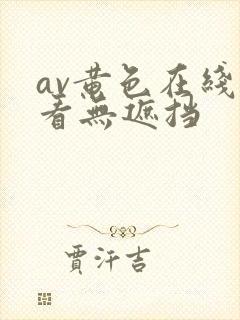 av黄色在綫
看無遮挡
賈汗吉